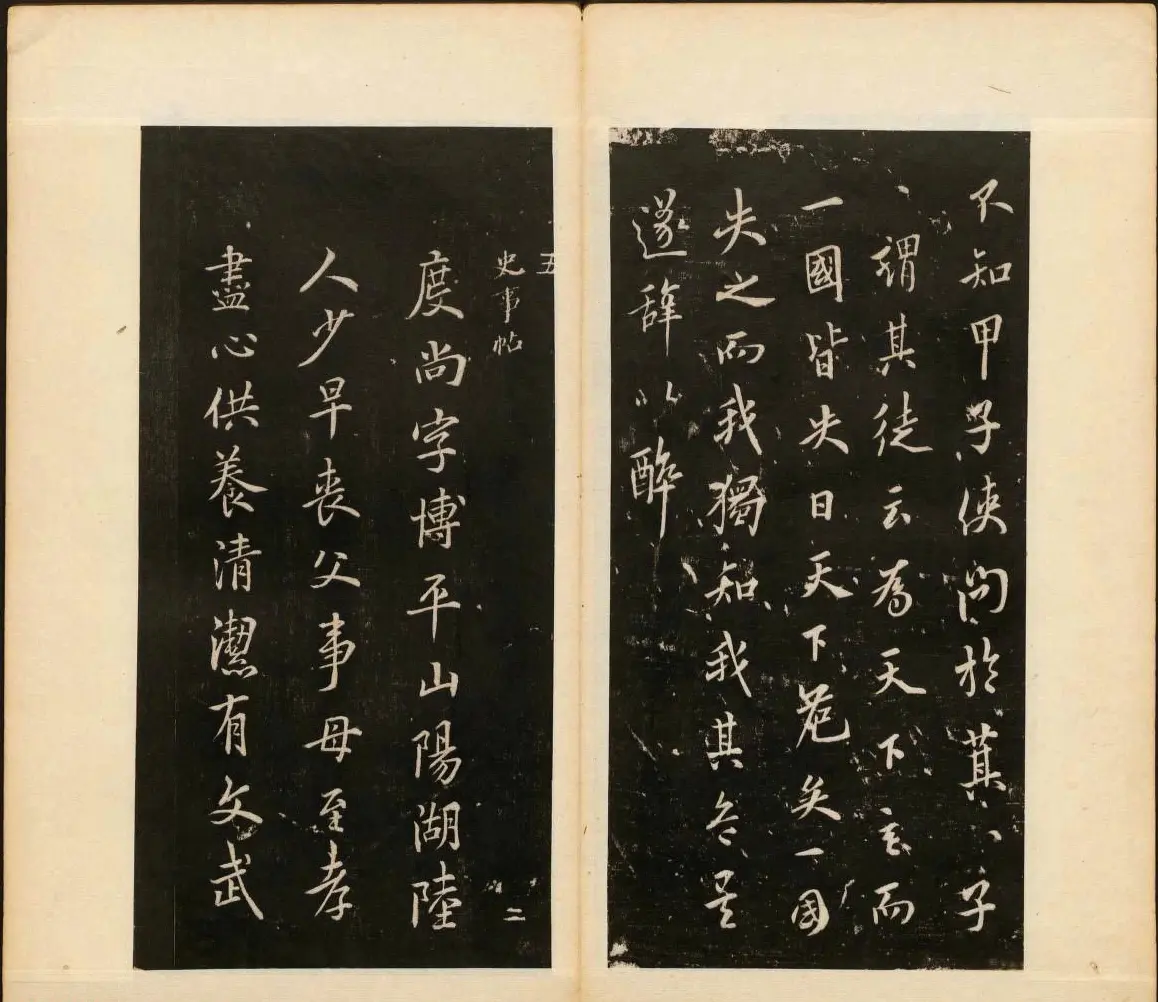 不知甲子使問於萁子
謂其徒云為天下主而
一國皆失日天下危矣一國
失之而我獨知我其危矣
遂辞以醉
五
史事帖
二
度尚字博平山陽湖陸
人少早喪父事母至孝
盡心供養清潔有文武